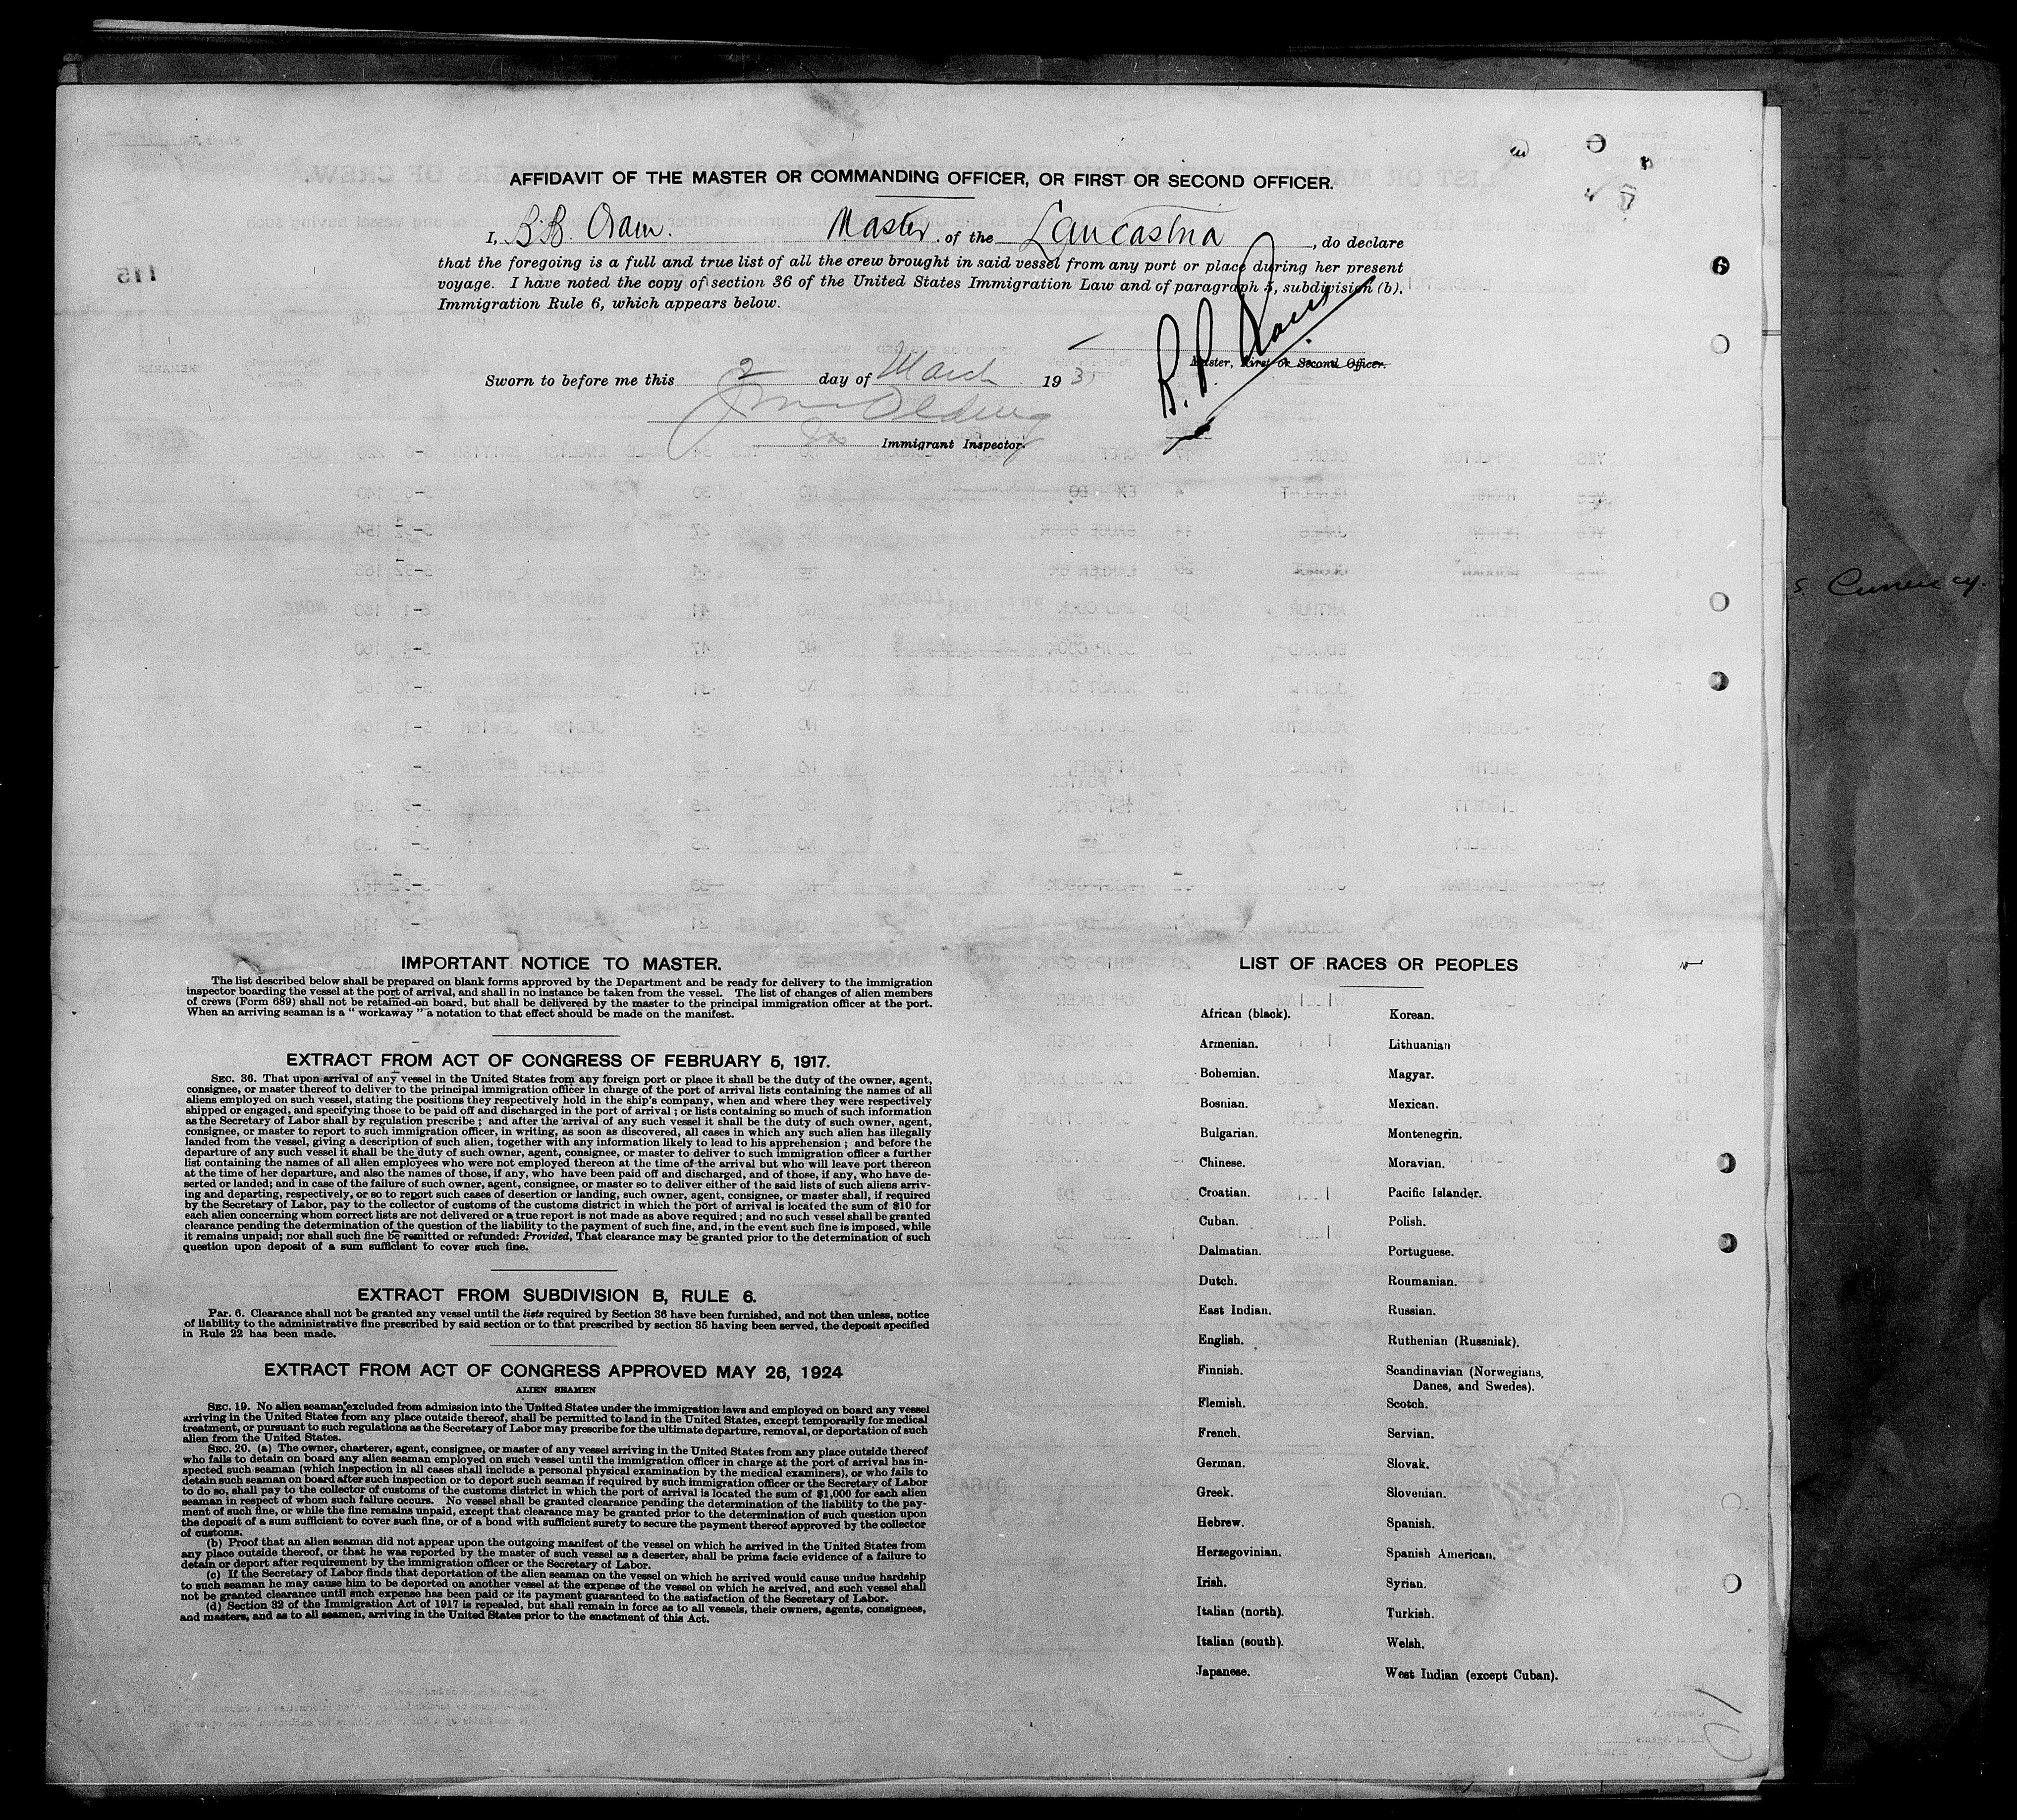 AFFIDAVIT OF THE MASTER OR COMMANDING OFFICER, OR FIRST OR SECOND OFFICER.
I, B.B. Oram. Master of the Lancastria, do declare
that the foregoing is a full and true list of all the crew brought in said vessel from any port or place during her present
voyage. I have noted the copy of section 36 of the United States Immigration Law and of paragraph 5, subdivision (b).
Immigration Rule 6, which appears below.
Master, First or Second Officer.
Sworn to before me this 2 day of March 193
Immigrant Inspector.
6
115
s. Currency.
IMPORTANT NOTICE TO MASTER.
The list described below shall be prepared on blank forms approved by the Department and be ready for delivery to the immigration
inspector boarding the vessel at the port of arrival, and shall in no instance be taken from the vessel. The list of changes of alien members
of crews (Form 689) shall not be retained on board, but shall be delivered by the master to the principal immigration officer at the port.
When an arriving seaman is a " workaway " a notation to that effect should be made on the manifest.
EXTRACT FROM ACT OF CONGRESS OF FEBRUARY 5, 1917.
SEC. 36. That upon arrival of any vessel in the United States from any foreign port or place it shall be the duty of the owner, agent,
consignee, or master thereof to deliver to the principal immigration officer in charge of the port of arrival lists containing the names of all
aliens employed on such vessel, stating the positions they respectively hold in the ship's company, when and where they were respectively
shipped or engaged, and specifying those to be paid off and discharged in the port of arrival ; or lists containing so much of such information
as the Secretary of Labor shall by regulation prescribe ; and after the arrival of any such vessel it shall be the duty of such owner, agent,
consignee, or master to report to such immigration officer, in writing, as soon as discovered, all cases in which any such alien has illegally
landed from the vessel, giving a description of such alien, together with any information likely to lead to his apprehension ; and before the
departure of any such vessel it shall be the duty of such owner, agent, consignee, or master to deliver to such immigration officer a further
list containing the names of all alien employees who were not employed thereon at the time of the arrival but who will leave port thereon
at the time of her departure, and also the names of those, if any, who have been paid off and discharged, and of those, if any, who have de-
serted or landed; and in case of the failure of such owner, agent, consignee, or master so to deliver either of the said lists of such aliens arriv-
ing and departing, respectively, or so to report such cases of desertion or landing, such owner, agent, consignee, or master shall, if required
by the Secretary of Labor, pay to the collector of customs of the customs district in which the port of arrival is located the sum of $10 for
each alien concerning whom correct lists are not delivered or a true report is not made as above required ; and no such vessel shall be granted
clearance pending the determination of the question of the liability to the payment of such fine, and, in the event such fine is imposed, while
it remains unpaid; nor shall such fine be remitted or refunded: Provided, That clearance may be granted prior to the determination of such
question upon deposit of a sum sufficient to cover such fine.
EXTRACT FROM SUBDIVISION B, RULE 6.
Par. 6. Clearance shall not be granted any vessel until the lists required by Section 36 have been furnished, and not then unless, notice
of liability to the administrative fine prescribed by said section or to that prescribed by section 35 having been served, the deposit specified
in Rule 22 has been made.
EXTRACT FROM ACT OF CONGRESS APPROVED MAY 26, 1924
ALIEN SEAMEN
SEC. 19. No alien seaman excluded from admission into the United States under the immigration laws and employed on board any vessel
arriving in the United States from any place outside thereof, shall be permitted to land in the United States, except temporarily for medical
treatment, or pursuant to such regulations as the Secretary of Labor may prescribe for the ultimate departure, removal, or deportation of such
alien from the United States.
SEC. 20. (a) The owner, charterer, agent, consignee, or master of any vessel arriving in the United States from any place outside thereof
who fails to detain on board any alien seaman employed on such vessel until the immigration officer in charge at the port of arrival has in-
spected such seaman (which inspection in all cases shall include a personal physical examination by the medical examiners), or who fails to
detain such seaman on board after such inspection or to deport such seaman if required by such immigration officer or the Secretary of Labor
to do so, shall pay to the collector of customs of the customs district in which the port of arrival is located the sum of $1,000 for each alien
seaman in respect of whom such failure occurs. No vessel shall be granted clearance pending the determination of the liability to the pay-
ment of such fine, or while the fine remains unpaid, except that clearance may be granted prior to the determination of such question upon
the deposit of a sum sufficient to cover such fine, or of a bond with sufficient surety to secure the payment thereof approved by the collector
of customs.
(b) Proof that an alien seaman did not appear upon the outgoing manifest of the vessel on which he arrived in the United States from
any place outside thereof, or that he was reported by the master of such vessel as a deserter, shall be prima facie evidence of a failure to
detain or deport after requirement by the immigration officer or the Secretary of Labor.
(c) If the Secretary of Labor finds that deportation of the alien seaman on the vessel on which he arrived would cause undue hardship
to such seaman he may cause him to be deported on another vessel at the expense of the vessel on which he arrived, and such vessel shall
not be granted clearance until such expense has been paid or its payment guaranteed to the satisfaction of the Secretary of Labor.
(d) Section 32 of the Immigration Act of 1917 is repealed, but shall remain in force as to all vessels, their owners, agents, consignees,
and masters, and as to all seamen, arriving in the United States prior to the enactment of this Act.
LIST OF RACES OR PEOPLES
African (black).
Armenian.
Bohemian.
Bosnian.
Bulgarian.
Chinese.
Croatian.
Cuban.
Dalmatian.
Dutch.
East Indian.
English.
Finnish.
Flemish.
French.
German.
Greek.
Hebrew.
Herzegovinian.
Irish.
Italian (north).
Italian (south).
Japanese.
Korean.
Lithuanian
Magyar.
Mexican.
Montenegrin.
Moravian.
Pacific Islander.
Polish.
Portuguese.
Roumanian.
Russian.
Ruthenian (Russniak).
Scandinavian (Norwegians,
Danes, and Swedes).
Scotch.
Servian.
Slovak.
Slovenian.
Spanish.
Spanish American.
Syrian.
Turkish.
Welsh.
West Indian (except Cuban).